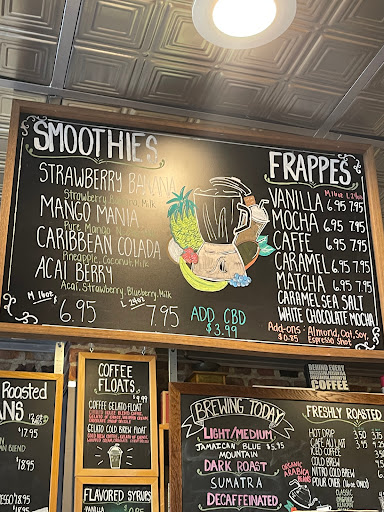 SMOOTHIES
STRAWBERRY BANANA
Strawberry Banana, Milk
MANGO MANIA
Pure Mango
CARIBBEAN COLADA
Pineapple, Coconut, Milk
ACAI BERRY
Acai, Strawberry, Blueberry, Milk
M 16oz 6.95 L 24oz 7.95
ADD CBD
$3.99
FRAPPES
M 16oz L 24oz
VANILLA 6.95 7.95
MOCHA 6.95 7.95
CAFFE 6.95 7.95
CARAMEL 6.95 7.95
MATCHA 6.95 7.95
CARAMEL SEA SALT
WHITE CHOCOLATE MOCHA
Add-ons: Almond, Oat, Soy,
Espresso Shot
Roasted
ANS
$17.95
$18.95
$18.95
$18.95
COFFEE
FLOATS
COFFEE GELATO FLOAT
GELATO COLD BREW FLOAT
FLAVORED SYRUPS
VANILLA
BEHIND EVERY
COFFEE
BREWING TODAY
LIGHT/MEDIUM
JAMAICAN BLUE $5.75
MOUNTAIN
DARK ROAST
SUMATRA
DECAFFEINATED
ORGANIC
ARABICA
BEANS
FRESHLY ROASTED
HOT DRIP
CAFE AU LAIT
ICED COFFEE
COLD BREW
NITRO COLD BREW
POUR OVER
CLASSIC
ORGANIC